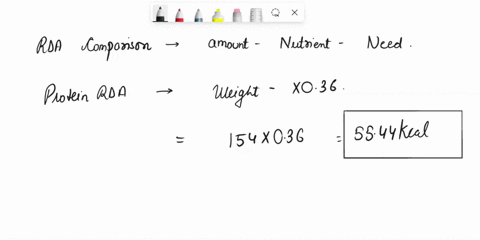 RDA Comparison → amount - Nutrient - Need.
Protein RDA → Weight - X0.36.
= 154 X 0.36 = 55.44 Kcal